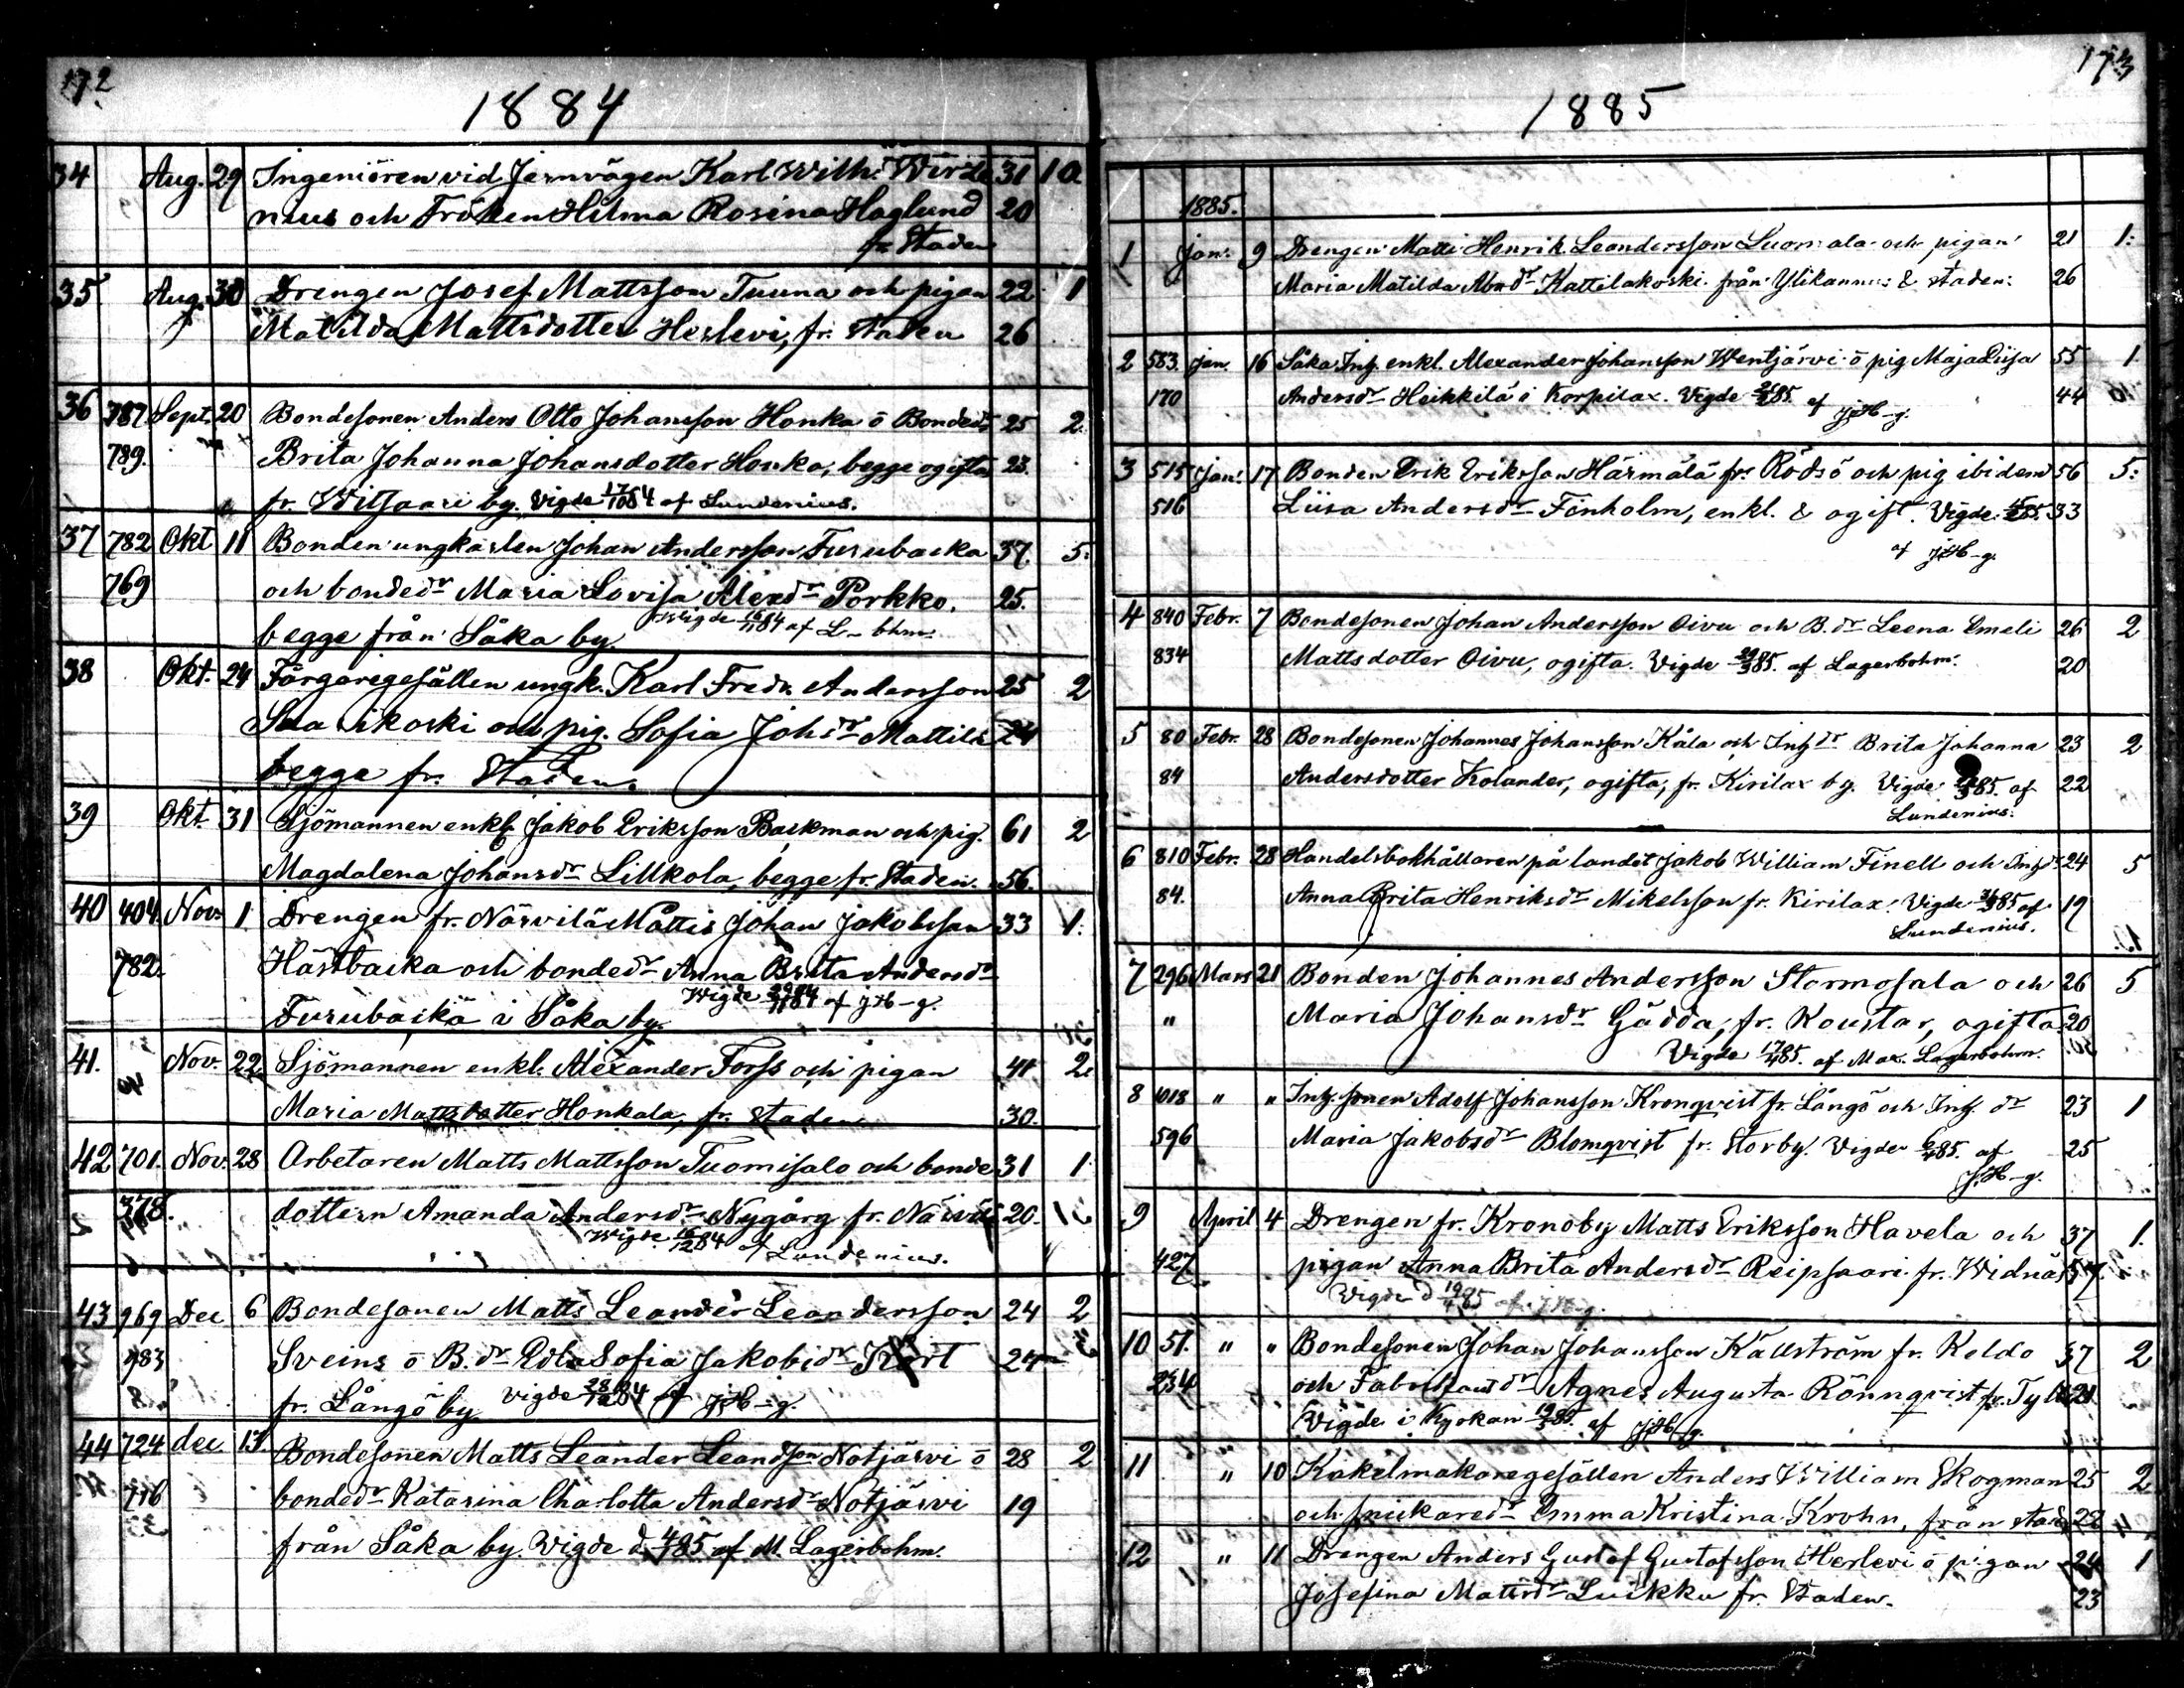 172
1884
34 Aug. 29 Ingeniören vid Jernvägen Karl Wilh. Wirze 31 10
nius och Fröken Hilma Rosina Haglund 20
fr. Staden
35 Aug. 30 Drengen Josef Mattsson Tuuna och pigan 22 1
Matilda Mattsdotter Herlevi, fr. staden 26
36 787 Sept. 20 Bondesonen Anders Otto Johansson Honka o Bondedr 25 2
789. Brita Johanna Johansdotter Honka, begge ogifta 23.
fr. Witsaari by. Vigde 17/10 84 af Lundenius.
37 782 Okt 11 Bonden ungkarlen Johan Andersson Furubacka 37. 5.
769 och bondedr Maria Lovisa Alexdr Porkko. 25.
begge från Såka by. Wigde 16/11 84 af L-bhm.
38 Okt. 24 Färgaregesällen ungk. Karl Fredr. Andersson 25 2
Saarikoski och pig. Sofia Johdr Mattila 24
begge fr. Staden.
39 Okt. 31 Sjömannen enkl. Jakob Eriksson Backman och pig. 61 2
Magdalena Johansdr Lillkola, begge fr. Staden. 56.
40 404. Nov. 1 Drengen fr. Närvilä Mattis Johan Jakobsson 33 1.
782. Hästbacka och bondedr Anna Brita Andersdr
Furubacka i Såka by. Wigde 29/11 84 af JH-g.
41. Nov. 22 Sjömannen enkl. Alexander Forss och pigan 41 2.
Maria Mattsdotter Honkala, fr. staden 30.
42 701. Nov. 28 Arbetaren Matts Mattsson Tuomisalo och bonde 31 1
378. dottern Amanda Andersdr Nygård fr. Närvilä 20.
Wigde 16/12 84 af Lundenius.
43 969 Dec 6 Bondesonen Matts Leander Leandersson 24 2
983 Sveins o B.dr Edla Sofia Jakobsdr Kort 24
fr. Långö by Vigde 28/12 84 af JH-g.
44 724 dec 13 Bondesonen Matts Leander Leandsson Notjärvi o 28 2
716 bondedr Katarina Charlotta Andersdr Notjärvi 19
från Såka by. Vigde d. 4/1 85 af M. Lagerbohm.
173
1885
1885.
1 Jan. 9 Drengen Matti Henrik Leandersson Luomala och pigan 21 1.
Maria Matilda Kattilakoski från Ylikannus & staden. 26
2 583. Jan. 16 Såka Inh. enkl. Alexander Johansson Wentjärvi o pig Maja Lisa 55 1
170 Andersdr Heikkilä i Korpilax. Vigde 85 af JH-g. 44
3 515 Jan. 17 Bonden Erik Eriksson Härmälä fr. Rödsö och pig ibidem 56 5.
516 Liisa Andersdr Finholm, enkl. & ogift. Vigde 85. 33
af JH-g.
4 840 Febr. 7 Bondesonen Johan Andersson Oivu och B.dr Leena Emeli 26 2
834 Mattsdotter Oivu, ogifta. Vigde 29/3 85. af Lagerbohm. 20
5 80 Febr. 28 Bondesonen Johannes Johansson Kåla och Inhdr Brita Johanna 23 2
84 Andersdotter Kolander, ogifta, fr. Kirilax by. Vigde 85. af 22
Lundenius.
6 810 Febr. 28 Handelsbokhållaren på landet Jakob William Finell och Inhdr 24 5
84. Anna Brita Henriksdr Mikelsson fr. Kirilax. Vigde 85 af 19
Lundenius.
7 296 Mars 21 Bonden Johannes Andersson Stormosala och 26 5
" Maria Johansdr Gädda, fr. Koustar, ogifta 20
Vigde 17/4 85. af Max. Lagerbohm.
8 1018 " " Inh. sonen Adolf Johansson Kronqvist fr. Långö och Inh. dr 23 1
596 Maria Jakobsdr Blomqvist fr. Storby. Vigde 6/4 85. af 25
JH-g.
9 April 4 Drengen fr. Kronoby Matts Eriksson Havela och 37 1.
427 pigan Anna Brita Andersdr Reipsaari fr. Widnäs 57
Vigde d 19/4 85 af JH-g.
10 51. " " Bondesonen Johan Johansson Källström fr. Keldo 37 2
234 och Agnes Augusta Rönnqvist fr. 21
Vigde i Kyrkan 19/ 85. af JH-g.
11 " 10 Kakelmakaregesällen Anders William Skogman 25 2
och snickaredr Emma Kristina Krohn, från staden 22
12 " 11 Drengen Anders Gustaf Gustafsson Herlevi o pigan 24 1
Josefina Mattsdr Luikku fr. Staden. 23